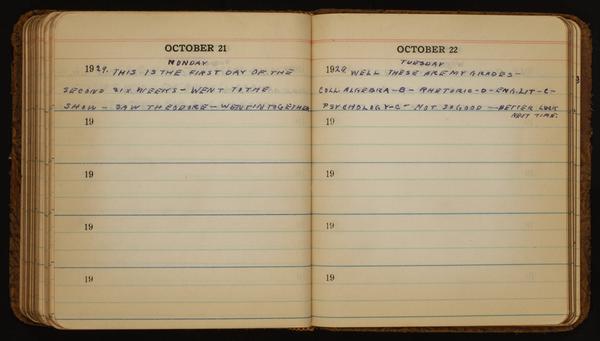 OCTOBER 21
MONDAY
1929. THIS IS THE FIRST DAY OF THE
SECOND SIX WEEKS - WENT TO THE
SHOW - SAW THEODORE - WENT IN TOGETHER
19
19
19
19
OCTOBER 22
TUESDAY
1929 WELL THESE ARE MY GRADES -
COLL ALGEBRA - B - RHETORIC - D - ENG. LIT - C -
PSYCHOLOGY - C- NOT SO GOOD - BETTER LUCK
NEXT TIME.
19
19
19
19